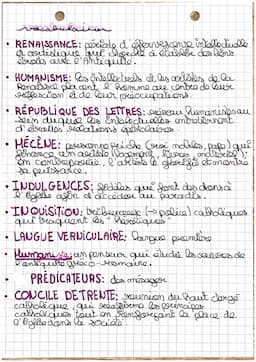 vocabulaire
• RENAISSANCE: période d'effervescence intellectuelle
et artistique qui cherche à établir des liens
étroits avec l'Antiquité.
• HUMANISME: les intellectuels et les artistes de la
Renaissance placent l'homme au centre de leur
réflexion et de leurs préoccupations.
• RÉPUBLIQUE DES LETTRES: réseau humaniste au
sein duquel les intellectuels entretiennent
d'étroites relations épistolaires.
• MÉCÈNE: personne riche (roi, nobles, pape) qui
finance un artiste (logement, matériel);
En contrepartie, l'artiste le glorifie et montre
sa puissance.
• INDULGENCES: fidèles qui font des dons à
l'Église afin d'accéder au paradis.
• INQUISITION: (→ police) catholiques
qui traquent les "hérétiques"
• LANGUE VERNICULAIRE: langue
• Humaniste: un penseur qui étudie les œuvres de
l'antiquité gréco-romaine.
• PRÉDICATEURS: des
• CONCILE DE TRENTE: réunion du haut clergé
catholique, qui les principes
catholiques tout en renforçant la place de
l'Église dans la société.